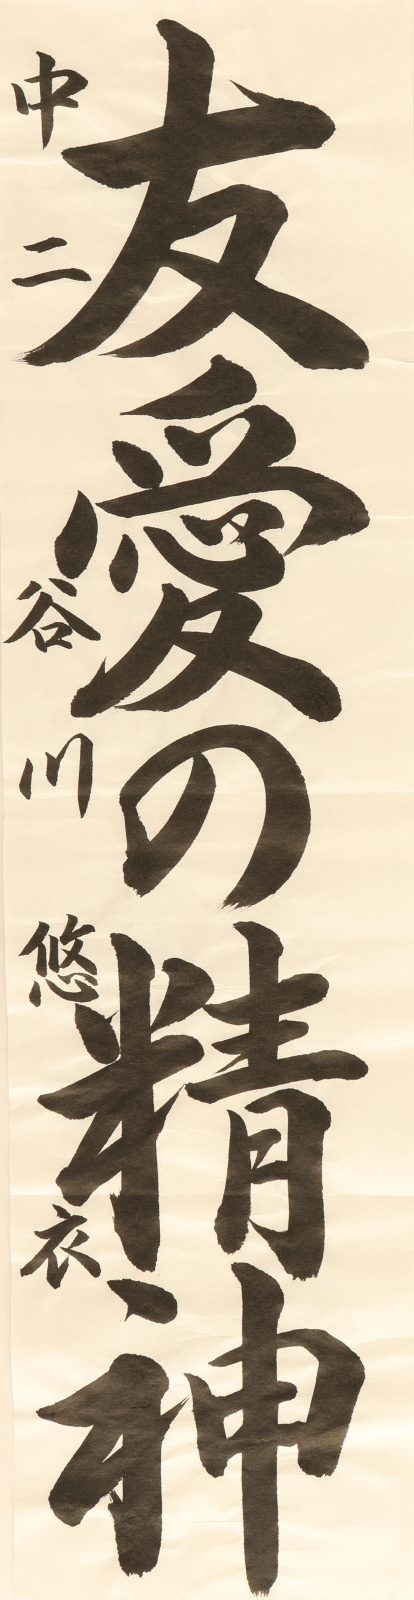 友愛の精神
中二 谷川悠衣